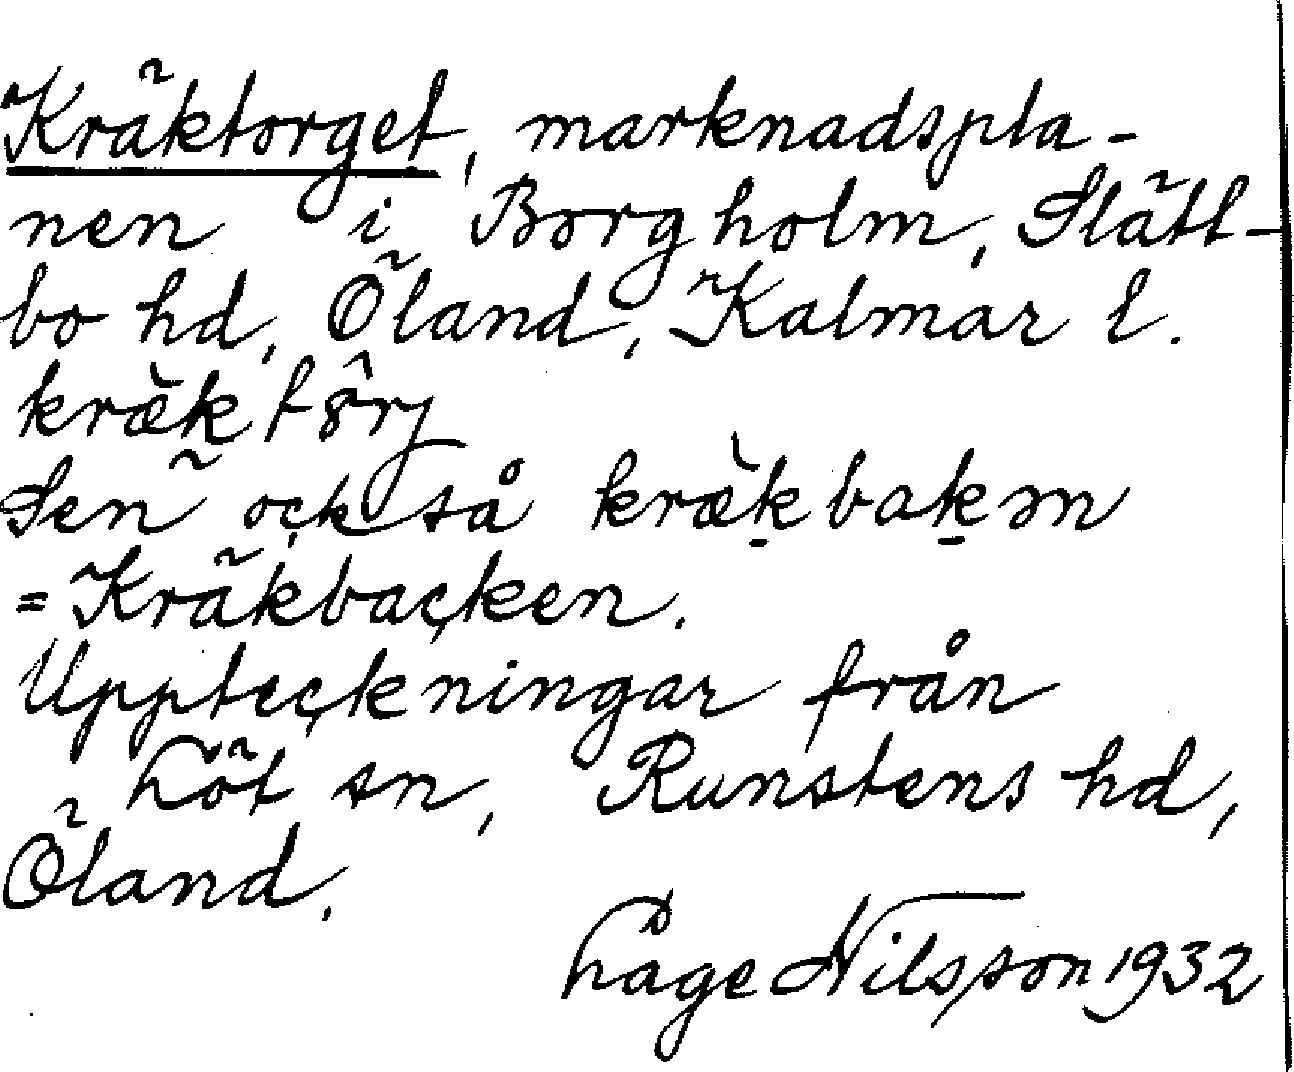 Kräktorget, marknadspla-
nen i Borgholm, Slätt-
bo hd, Öland, Kalmar l.
Sen också kræ̀kbakən
= Kräkbacken.
Uppteckningar från
Löt sn, Runstens hd,
Öland.
Låge Nilsson 1932